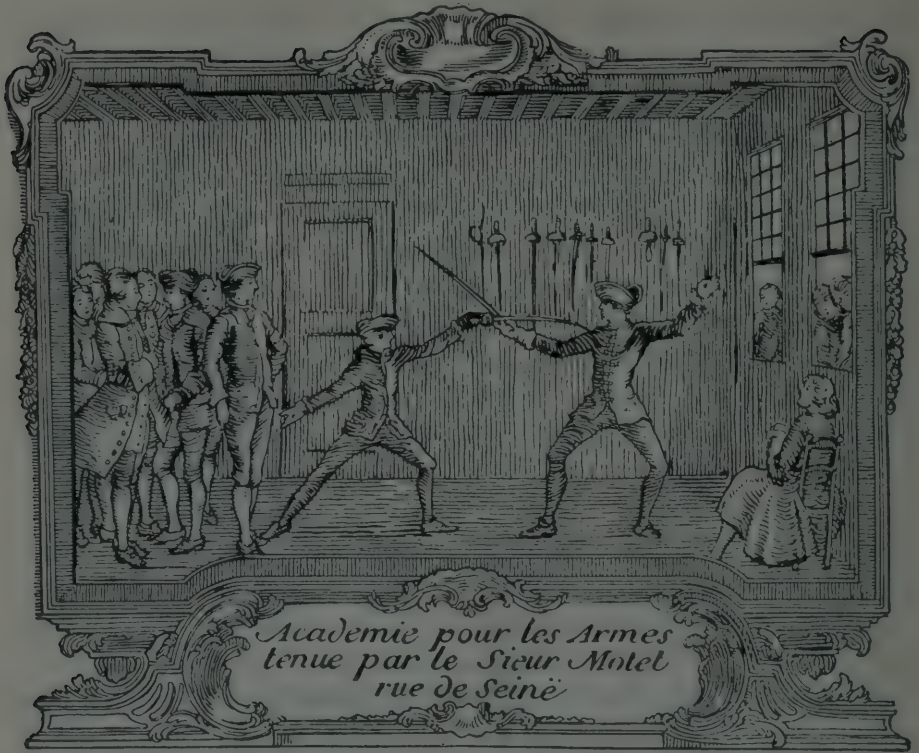 Academie pour les Armes
tenue par le Sieur Motet
rue de Seinë